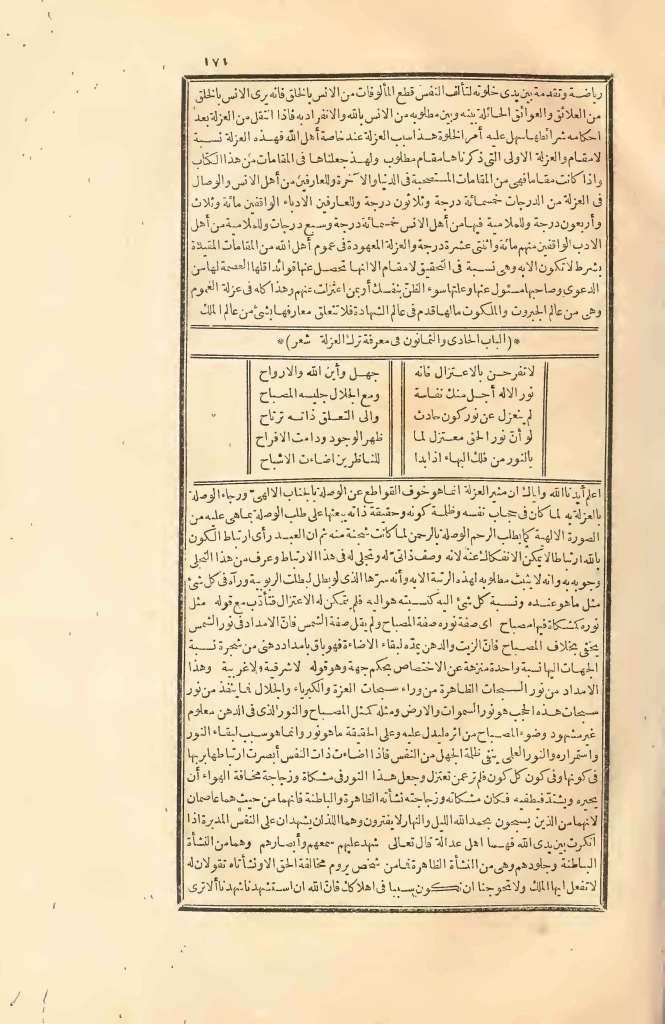 ١٧٦
رياضة وتقدمة بين يدى خلوته لتألف النفس قطع المألوفات من الانس بالخلق فانه يرى الانس بالخلق
من العلائق والعوائق الحائلة بينه وبين مطلوبه من الانس بالله والانفراد به فاذا انتقل من العزلة بعد
احكامه شرائطها سهل عليه أمر الخلوة هذا سبب العزلة عند خاصة أهل الله فهذه العزلة نسبة
لامقام والعزلة الاولى التى ذكرناها مقام مطلوب ولهذا جعلناها فى المقامات من هذا الكتاب
واذا كانت مقاما فهى من المقامات المستصحبة فى الدنيا والآخرة وللعارفين من أهل الانس والوصال
فى العزلة من الدرجات خمسمائة درجة وثلاثون درجة وللعارفين الادباء الواقفين مائة وثلاث
وأربعون درجة وللملامية فيها من أهل الانس خمسمائة درجة وسبع درجات وللملامية من أهل
الادب الواقفين منهم مائة واثنتى عشرة درجة والعزلة المعهودة فى عموم أهل الله من المقامات المقيدة
بشرط لا تكون الابه وهى نسبة فى التحقيق لامقام الا انها تحصل عنها فوائد اقلها العصمة لها سن
الدعوى وصاحبها مسئول عنها وعلتها سوء الظن بنفسك أو بمن اعتزلت عنهم وهذا كله فى عزلة العموم
وهى من عالم الجبروت والملكوت مالها قدم فى عالم الشهادة فلا تتعلق معارفها بشئ من عالم الملك
*(الباب الحادى والثمانون فى معرفة ترك العزلة شعر)*
لاتفرحن بالاعتزال فانه جهل وأين الله والارواح
نور الاله أجل منك نفاسة ومع الجلال جليسه المصباح
لم ينعزل عن نور كون حادث والى التعلق ذاته ترتاح
لو أن نور الحق معتزل لما ظهر الوجود ودامت الافراح
بالنور من فلك البهاء اذا بدا للناظرين اضاءت الاشباح
اعلم أيدنا الله واياك ان مثير العزلة انما هو خوف القواطع عن الوصلة بالجناب الالهى ورجاء الوصلة
بالعزلة به لما كان فى حجاب نفسه وظلمة كونه وحقيقة ذاته يبعثها على طلب الوصلة بماهى عليه من
الصورة الالهية كما يطلب الرحم الوصلة بالرحمن لما كانت شجنة منه ثم ان العبد رأى ارتباط الكون
بالله ارتباطا لا يمكن الانفكاك عنه لانه وصف ذاتى له وتجلى له فى هذا الارتباط وعرف من هذا التجلى
وجوبه به وانه لا يثبت مطلوبه لهذه الرتبة الا به وأنه سرها الذى لو بطل لبطلت الربوبية ورآه فى كل شئ
مثل ما هو عنده ونسبة كل شئ اليه كنسبته هو اليه فلم يتمكن له الاعتزال فتأدب مع قوله مثل
نوره كمشكاة فيها مصباح اى صفة نوره صفة المصباح ولم يقل صفة الشمس فان الامداد فى نور الشمس
يخفى بخلاف المصباح فان الزيت والدهن يمده لبقاء الاضاءة فهو باق بامداد دهنى من شجرة نسبة
الجهات اليها نسبة واحدة منزهة عن الاختصاص بحكم جهة وهو قوله لا شرقية ولا غربية وهذا
الامداد من نور السبحات الظاهرة من وراء سبحات العزة والكبرياء والجلال فما ينفذ من نور
سبحات هذه الحجب هو نور السموات والارض ومثله كمثل المصباح والنور الذى فى الدهن معلوم
غير مشهود وضوء المصباح من اثره ليدل عليه وعلى الحقيقة ما هو نور وانما هو سبب لبقاء النور
واستمراره والنور العلمى ينفى ظلمة الجهل من النفس فاذا اضاءت ذات النفس أبصرت ارتباطها بربها
فى كونها وفى كون كل كون فلم تر عمن تعتزل وجعل هذا النور فى مشكاة وزجاجة مخافة الهواء أن
يحيره ويشتد فيطفيه فكان مشكاته وزجاجته نشأته الظاهرة والباطنة فانهما من حيث هما عاصمان
لانهما من الذين يسبحون بحمد الله الليل والنهار لا يفترون وهما اللذان يشهدان على النفس المدبرة اذا
انكرت بين يدى الله فهما اهل عدالة قال تعالى شهد عليهم سمعهم وأبصارهم وهما من النشأة
الباطنة وجلودهم وهى من النشأة الظاهرة فمامن شخص يروم مخالفة الحق الا ونشأتاه تقولان له
لا تفعل ايها الملك ولا تحوجنا ان نكون سببا فى اهلاكك فان الله ان استشهدنا شهدنا ألا ترى